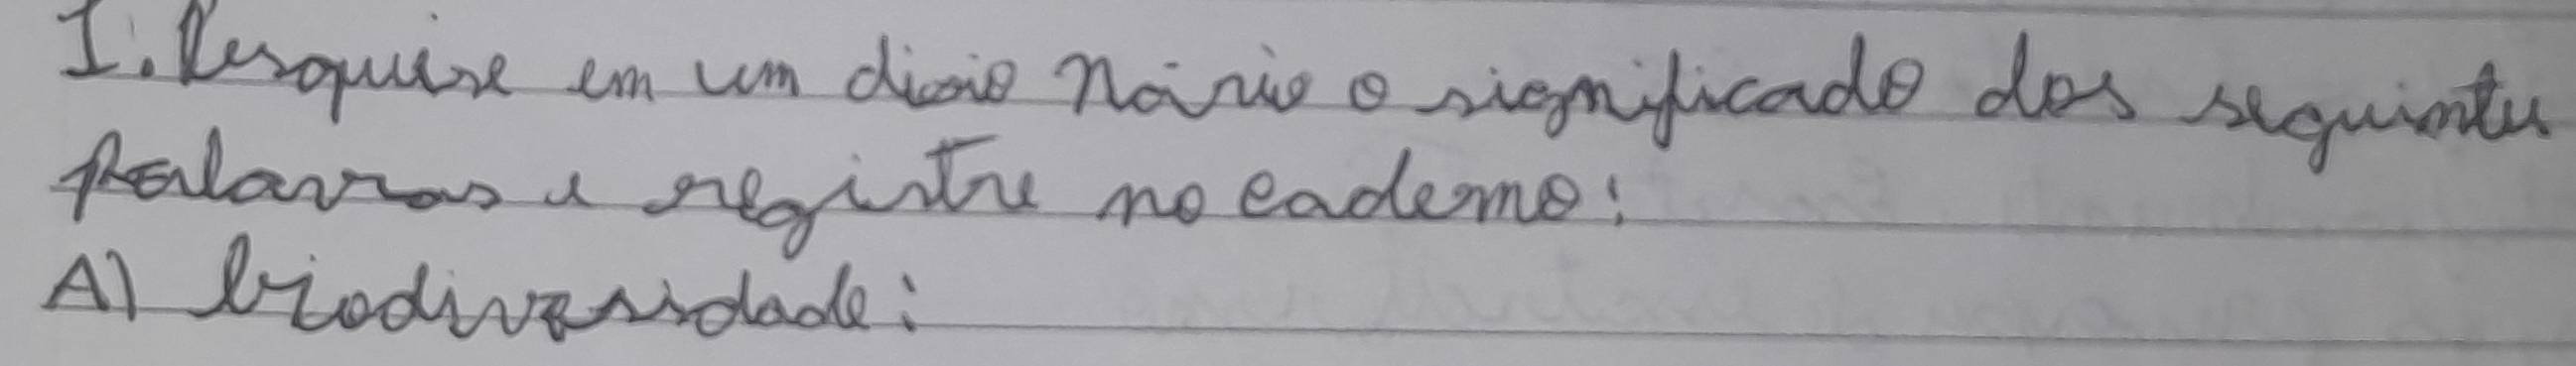 I. Pesquise em um dicio Nário o significado das seguintes
palavras e registre no caderno:
A) biodiversidade: